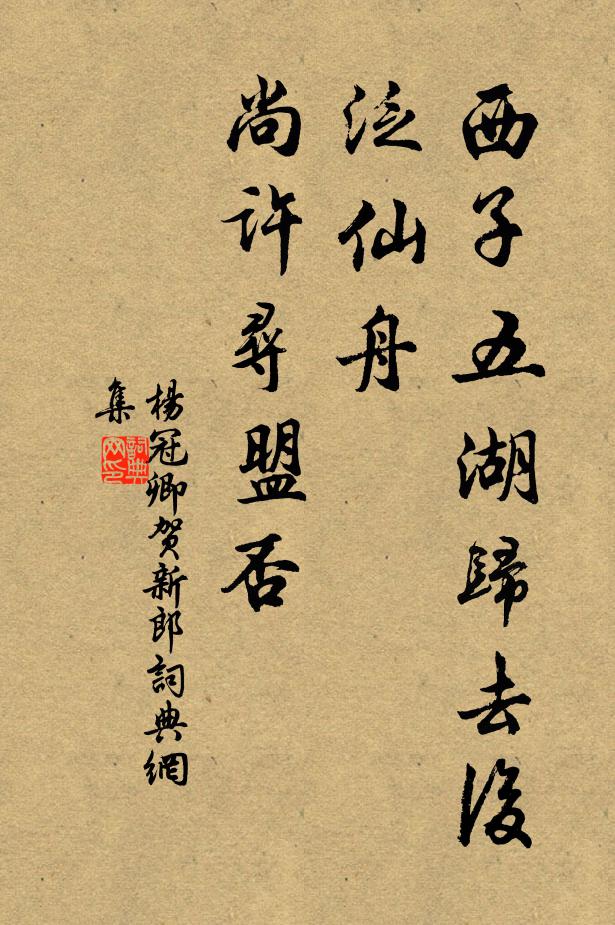 西子五湖歸去後
泛仙舟
尚許尋盟否
楊冠卿賀新郎詞典網
集
詞典
网印